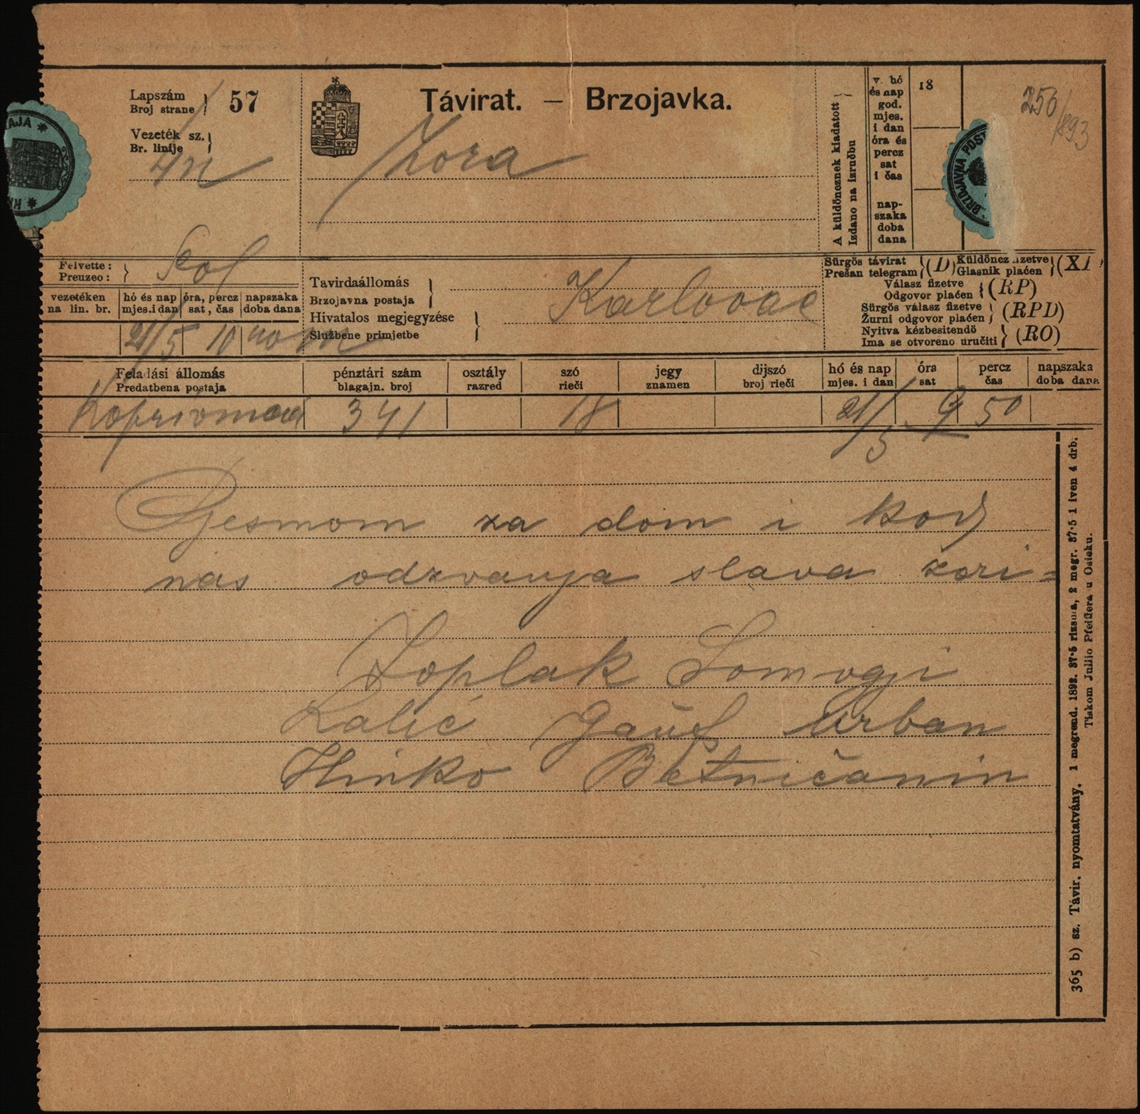 Lapszám
Broj strane } 57
Vezeték sz.
Br. linije }
Távirat. – Brzojavka.
Zora
A küldöncznek kiadatott
Izdano na izručbu
v. hó
és nap
god.
mjes.
i dan
óra és
percz
sat
i čas
nap-
szaka
doba
dana
18
256/893
BRZOJAVNA POST
AJA
Felvette:
Preuzeo: }
vezetéken
na lin. br.
hó és nap
mjes. i dan
óra, percz
sat, čas
napszaka
doba dana
21/5 10
Tavirdaállomás
Brzojavna postaja }
Hivatalos megjegyzése
Službene primjetbe }
Karlovac
Sürgös távirat
Prešan telegram } (D)
Küldöncz fizetve
Glasnik plaćen } (XP)
Válasz fizetve
Odgovor plaćen } (RP)
Sürgös válasz fizetve
Žurni odgovor plaćen } (RPD)
Nyitva kézbesitendö
Ima se otvoreno uručiti } (RO)
Feladási állomás
Predatbena postaja
pénztári szám
blagajn. broj
osztály
razred
szó
rieči
jegy
znamen
díjszó
broj rieči
hó és nap
mjes. i dan
óra
sat
percz
čas
napszaka
doba dana
Koprivnica 341 18 21/5 9 50
Pjesmom za dom i kod
nas odzvanja slava zori =
Toplak Somogji
Lalić Gauš Urban
Hinko Betničanin
365 b) sz. Távir. nyomtatvány. 1 megrend. 1892. 37·5 rizsma, 2 megr. 37·5 1 iven 4 drb.
Tiskom Julijo Pfeiffera u Osieku.